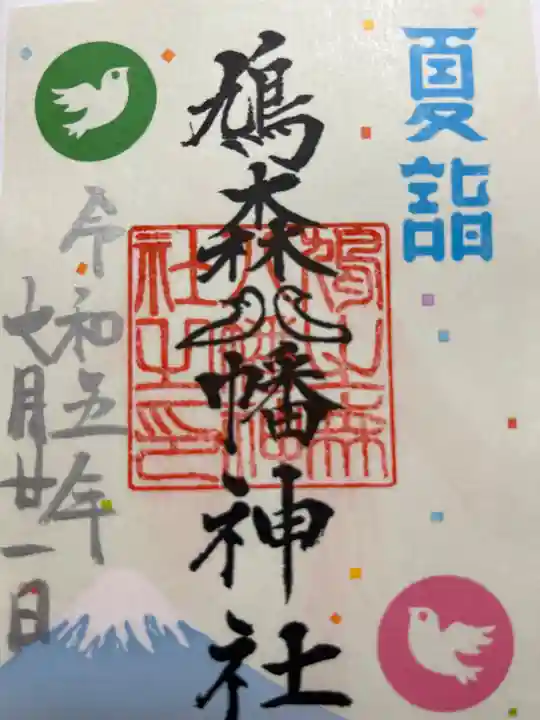 夏詣
鳩森八幡神社
鳩之森
八幡神
社之印
令和五年
七月廿一日